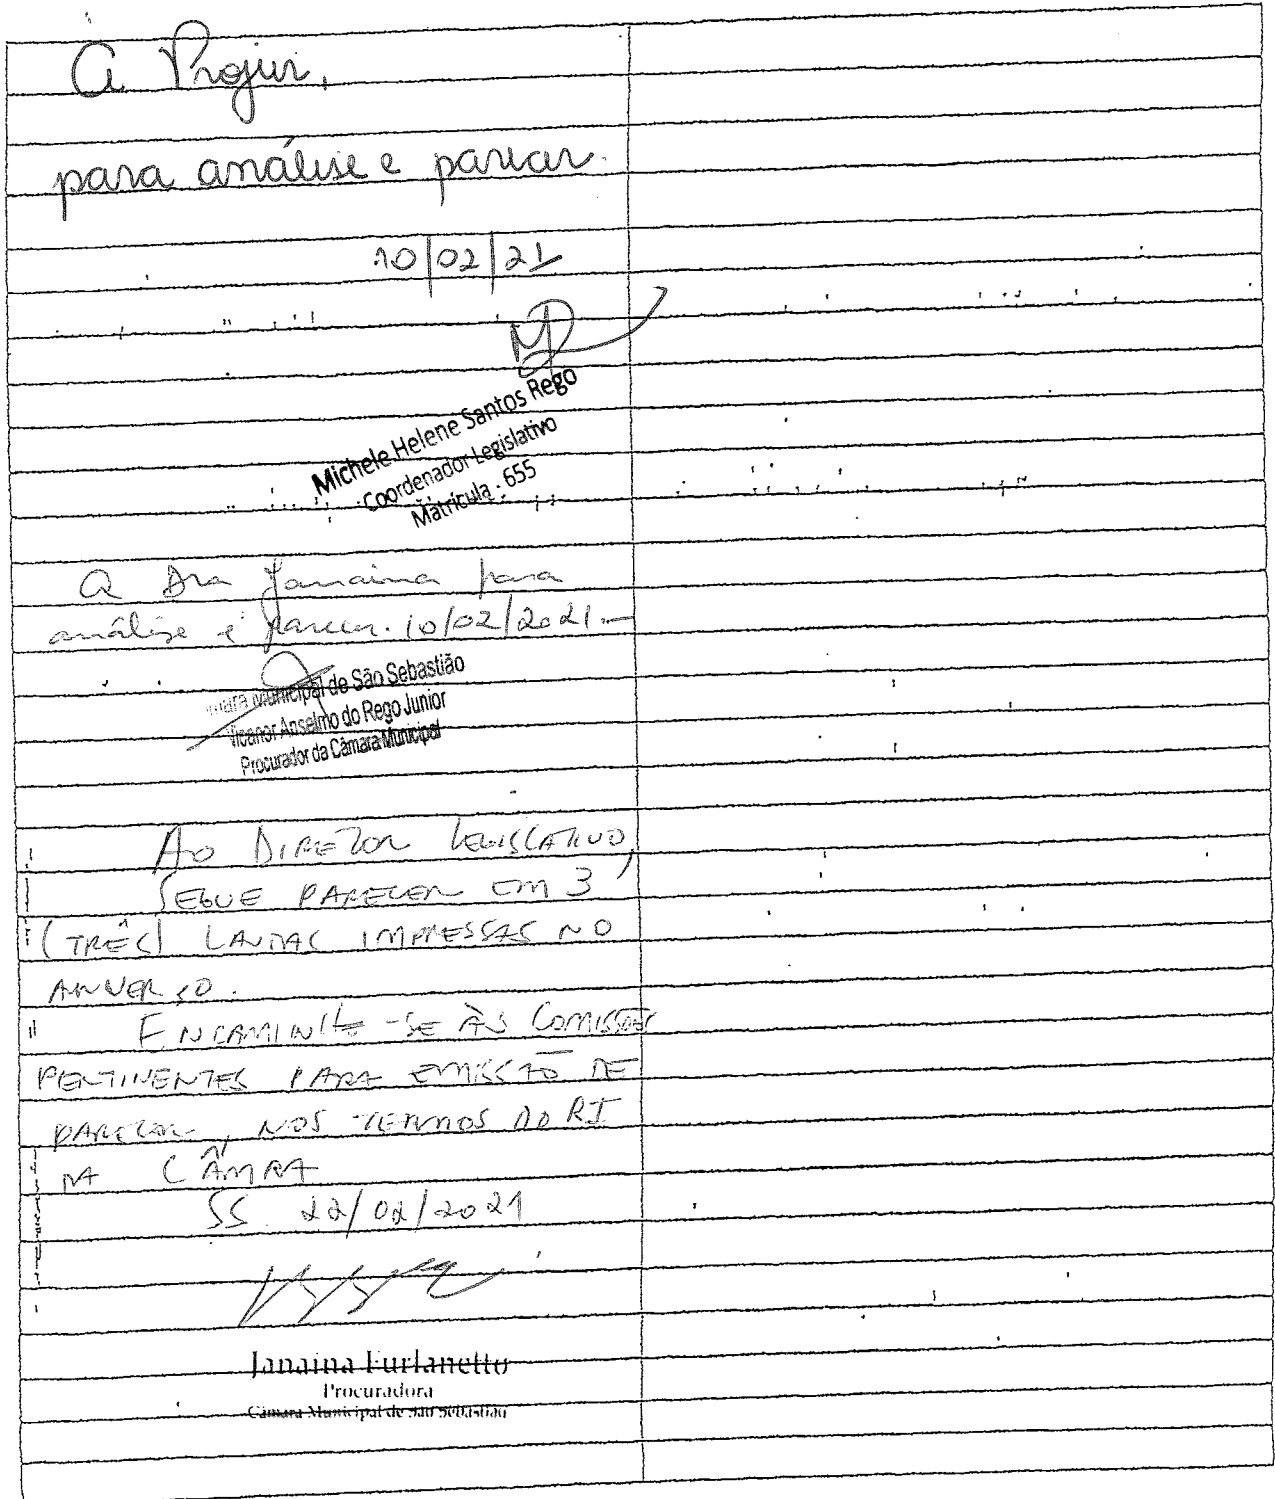 A Projur,
para análise e parecer.
10/02/21
Michele Helene Santos Rego
Coordenador Legislativo
Matrícula - 655
A Dra Janaina para
análise e parecer. 10/02/2021.
Municipal de São Sebastião
Anselmo do Rego Junior
Procurador da Câmara Municipal
AO DIRETOR LEGISLATIVO,
SEGUE PARECER EM 3
(TRÊS) LAUDAS IMPRESSAS NO
ANVERSO.
ENCAMINHE-SE ÀS COMISSÕES
PERTINENTES PARA EMISSÃO DE
PARECER, NOS TERMOS DO RI
DA CÂMRA
SS 22/02/2021
Janaina Furlanetto
Procuradora
Câmara Municipal de São Sebastião